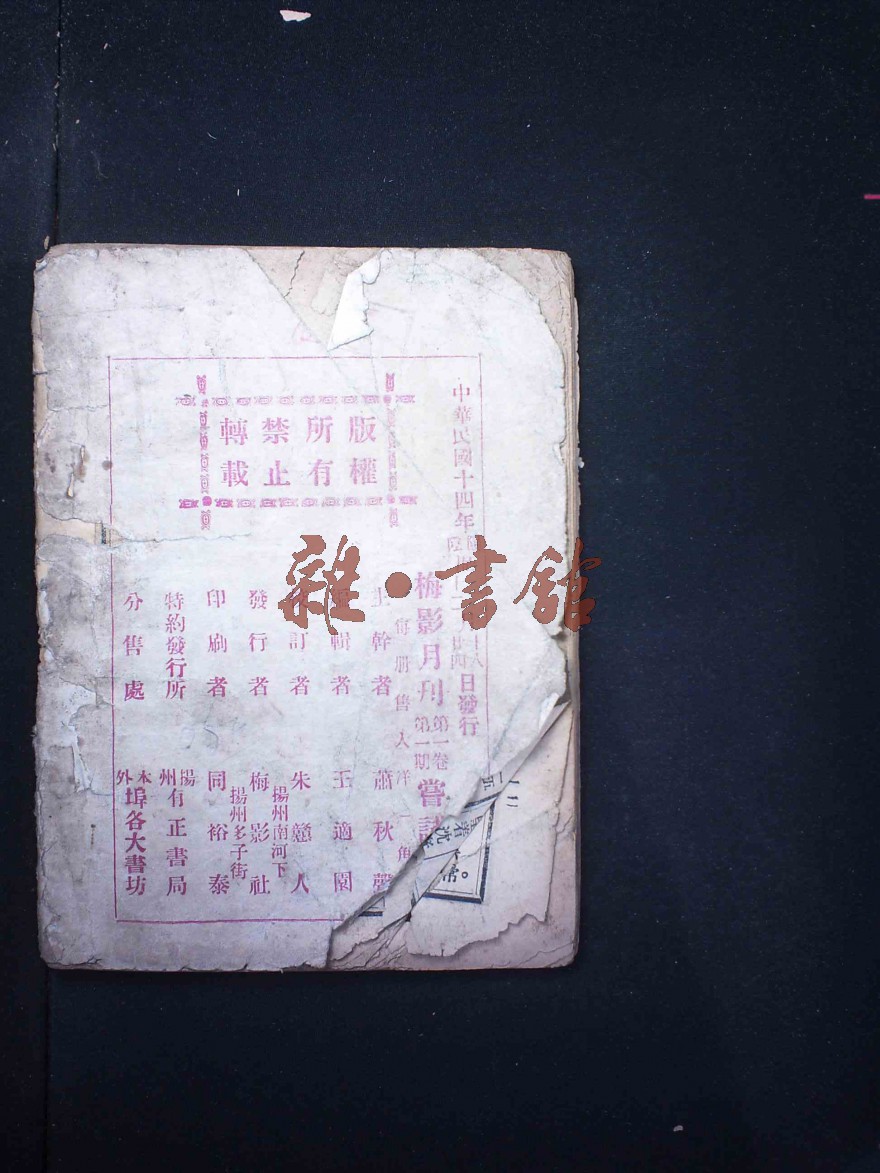 中華民國十四年
日發行
梅影月刊 第一卷 第一期 嘗試
每册售大洋一角
主幹者 蕭秋
編輯者 王適園
校訂者 朱戆人
發行者 梅影社
揚州南河下
印刷者 同裕泰
揚州多子街
特約發行所 揚州有正書局
分售處 本外埠各大書坊
版權所有
禁止轉載
雜·書舘